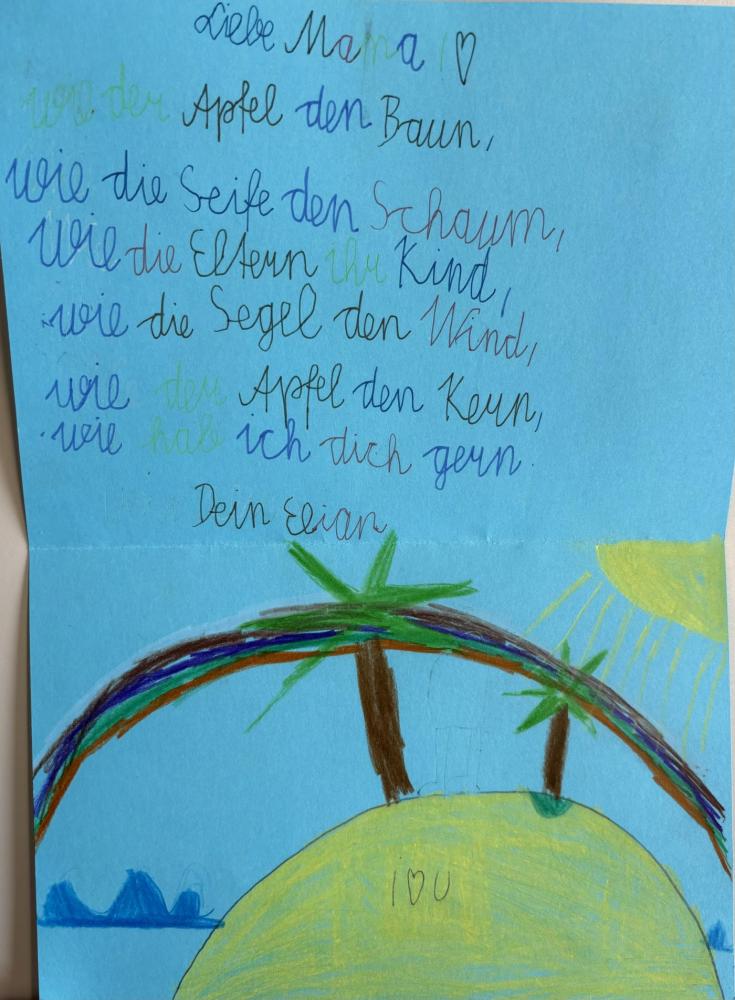 Liebe Mama ! ♡
wie der Apfel den Baun,
wie die Seife den Schaum,
wie die Eltern ihr Kind,
wie die Segel den Wind,
wie der Apfel den Kern,
wie hab ich dich gern.
Dein Elian
I ♡ U